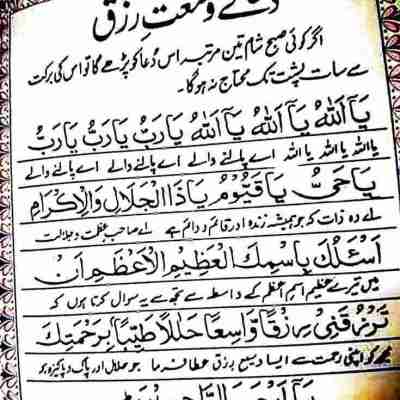 دعائے وسعتِ رزق
اگر کوئی صبح شام تین مرتبہ اس دُعا کو پڑھے گا تو اس کی برکت
سے سات پشت تک محتاج نہ ہوگا۔
يَآ اَللّٰهُ يَآ اَللّٰهُ يَآ اَللّٰهُ يَارَبُّ يَارَبُّ يَارَبُّ
یا اللہ یا اللہ یا اللہ اے پالنے والے اے پالنے والے اے پالنے والے
يَاحَىُّ يَاقَيُّوْمُ يَاذَا الْجَلَالِ وَالْاِكْرَامِ
اے وہ ذات کہ جو ہمیشہ زندہ اور قائم و دائم ہے اے صاحب عظمت و جلالت
اَسْئَلُكَ بِاسْمِكَ الْعَظِيْمِ الْاَعْظَمِ اَنْ
میں تیرے عظیم اسم اعظم کے واسطے سے تجھ سے یہ سوال کرتا ہوں کہ
تَرْزُقَنِىْ رِزْقًا وَاسِعًا حَلٰلًا طَيِّبًا بِرَحْمَتِكَ
مجھ کو اپنی رحمت سے ایسا وسیع رزق عطا فرما جو حلال اور پاک و پاکیزہ ہو
يَآ اَرْحَمَ الرَّاحِمِيْنَ